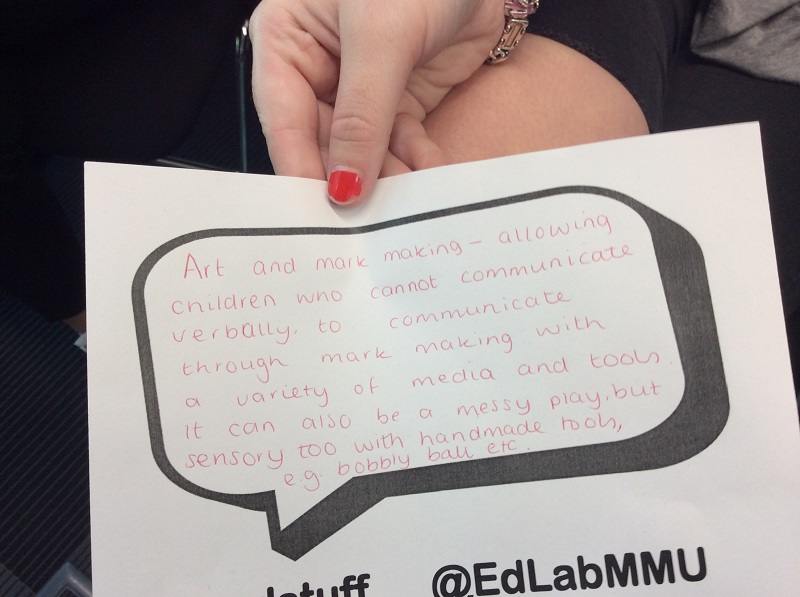 Art and mark making - allowing
children who cannot communicate
verbally, to communicate
through mark making with
a variety of media and tools.
It can also be a messy play, but
sensory too with handmade tools,
e.g. bobbly ball etc.
@EdLabMMU